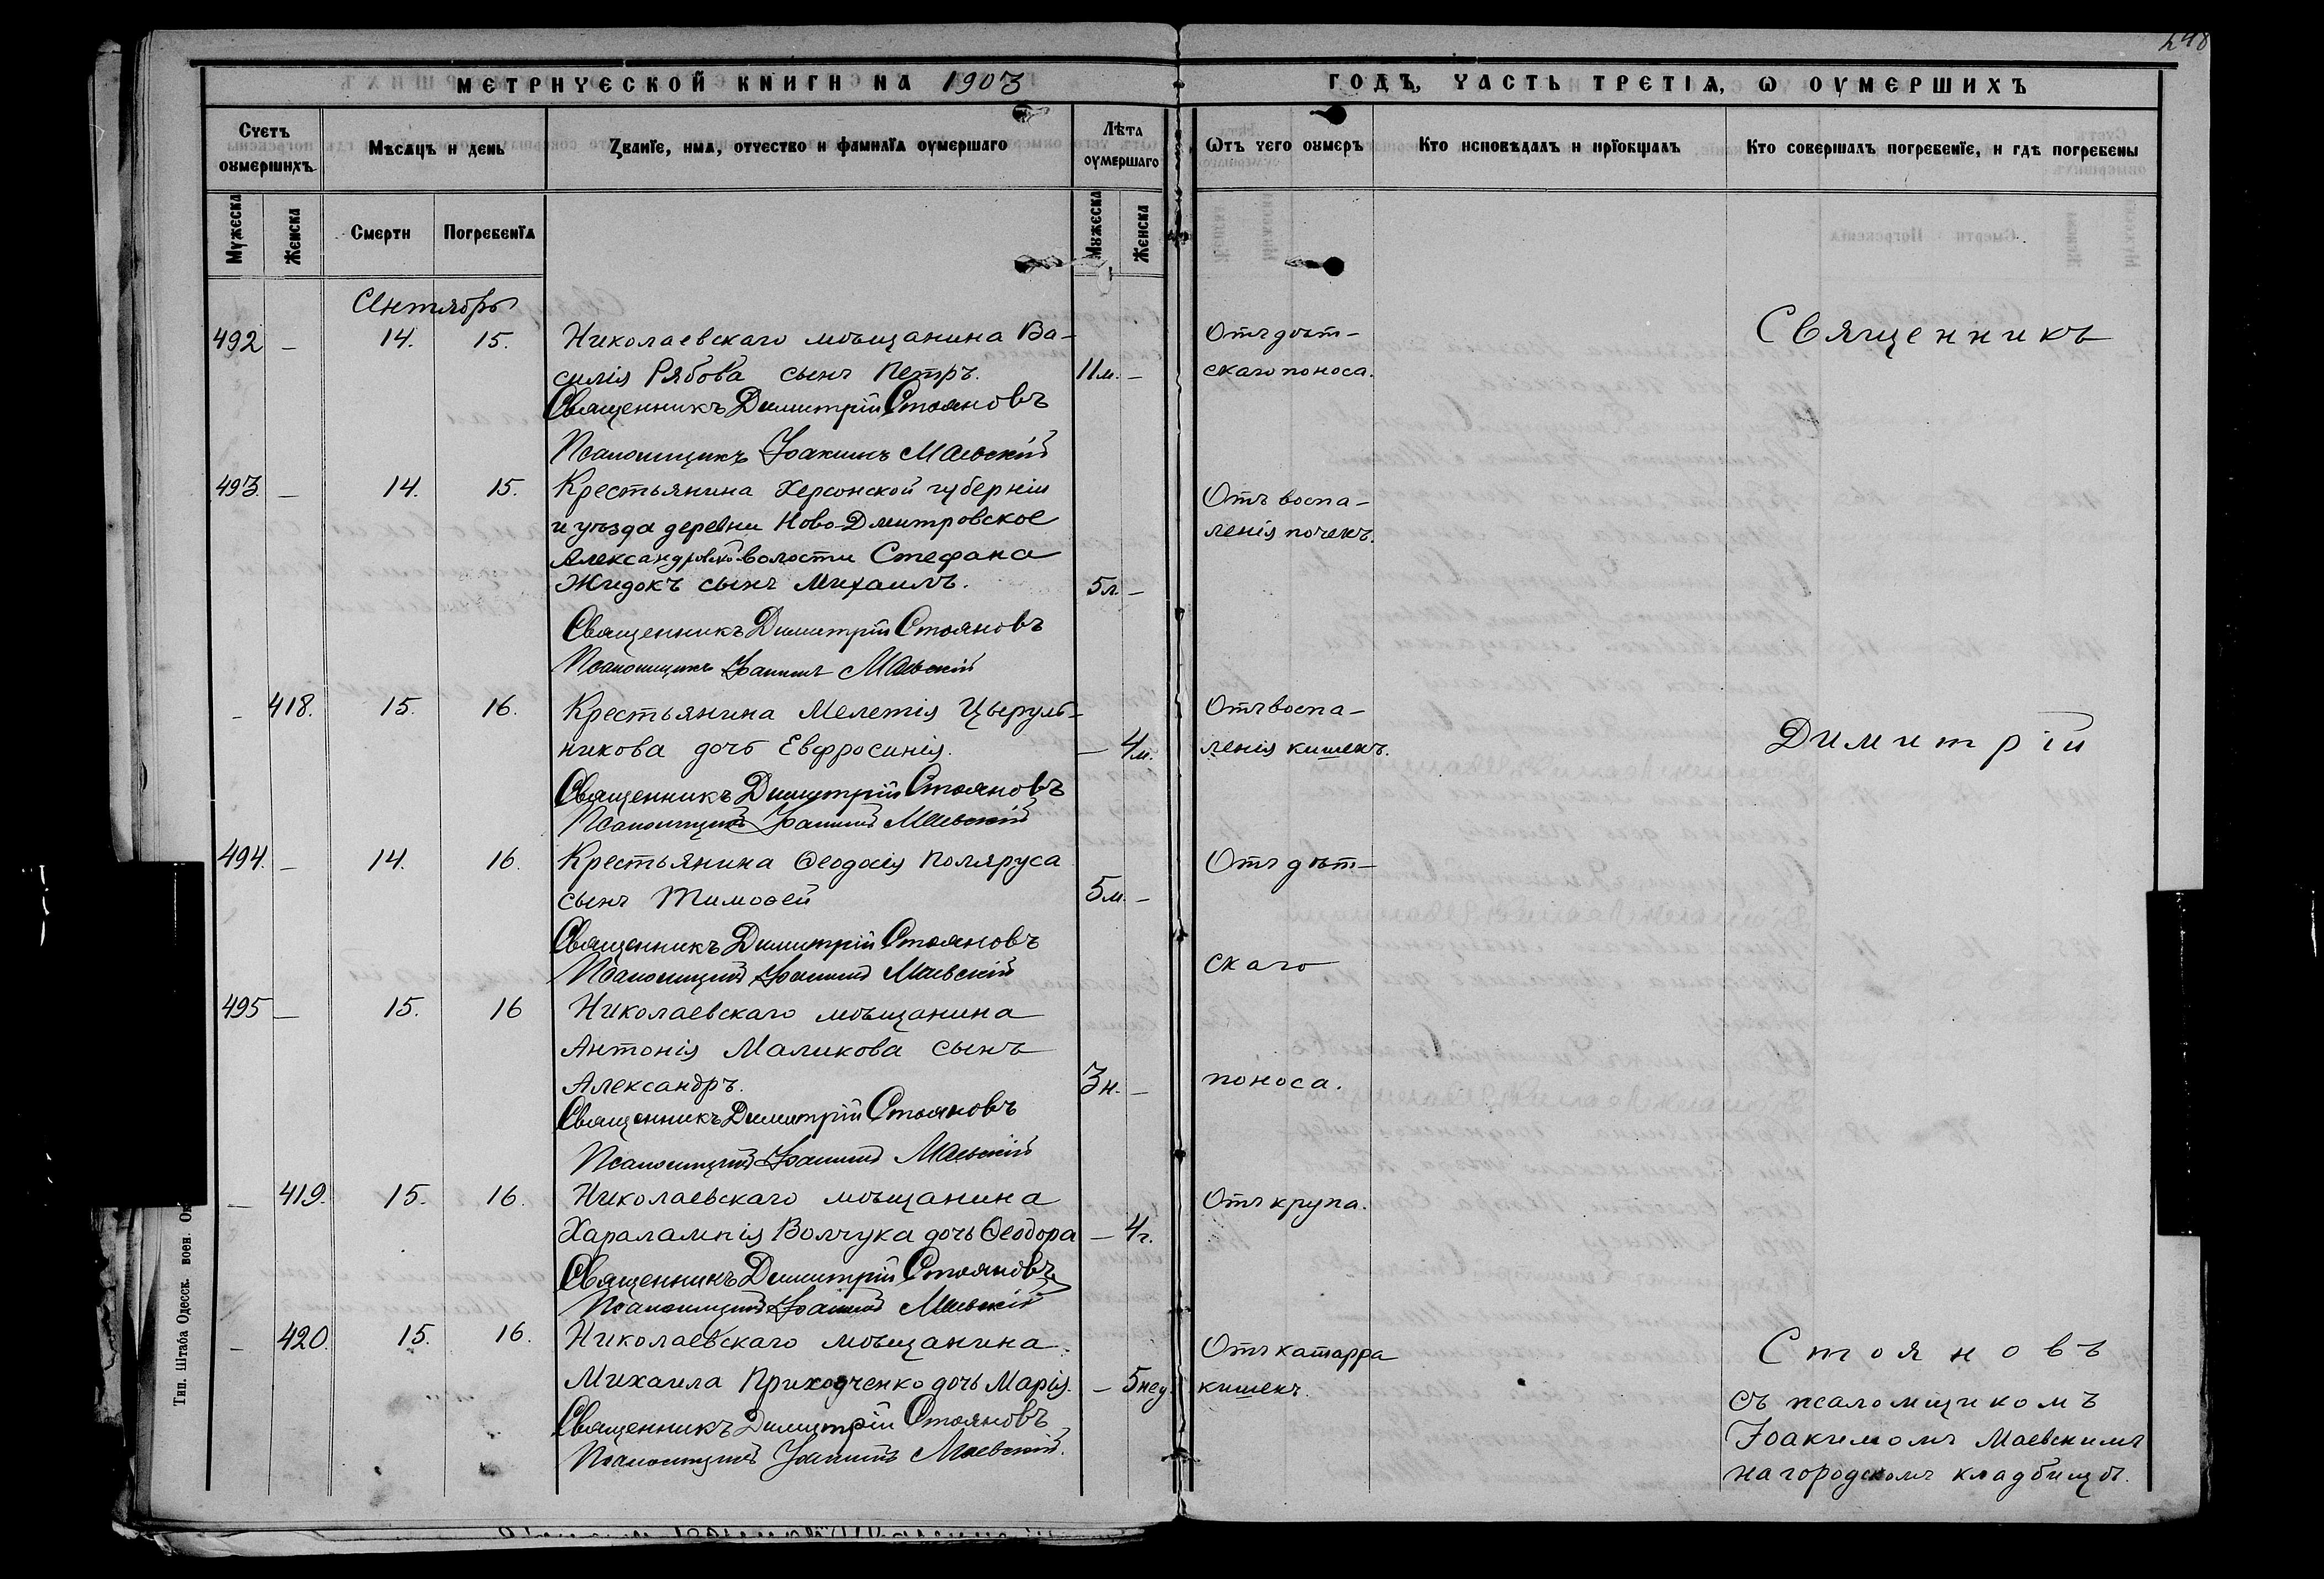 248
МЕТРИЧЕСКОЙ КНИГИ НА 1903
ГОДЪ, ЧАСТЬ ТРЕТІѦ, Ѡ ОУМЕРШИХЪ
Счетъ оумершихъ
Мѣсѧцъ и день
Званїе, имѧ, отчество и фамилїа оумершаго
Лѣта оумершаго
Ѿтъ чего оумеръ
Кто исповѣдалъ и прїобщалъ
Кто совершалъ погребенїе, и гдѣ погребены
Мужеска
Женска
Смерти
Погребенїѧ
Мужеска
Женска
Сентябрь
492 – 14. 15. Николаевскаго мѣщанина Ва-
силія Рябова сынъ Петръ. 11м. –
Отъ дѣт-
скаго поноса.
Священникъ Димитрій Стояновъ
Псаломщикъ Іоакимъ Маевскій
493. – 14. 15. Крестьянина Херсонской губерніи
и уѣзда деревни Ново-Дмитровское
Александровской волости Стефана
Жидокъ сынъ Михаилъ. 5л. –
Отъ воспа-
ленія почекъ.
Священникъ Димитрій Стояновъ
Псаломщикъ Іоакимъ Маевскій
– 418. 15. 16. Крестьянина Мелетія Цыруль-
никова дочь Евфросинія. – 4м.
Отъ воспа-
ленія кишекъ.
Священникъ Димитрій Стояновъ
Псаломщикъ Іоакимъ Маевскій
494. – 14. 16. Крестьянина Ѳеодосія Поляруса
сынъ Тимоѳей 5м. –
Отъ дѣт-
Священникъ Димитрій Стояновъ
Псаломщикъ Іоакимъ Маевскій
скаго
495 – 15. 16 Николаевскаго мѣщанина
Антонія Маликова сынъ
Александръ. 3н. –
поноса.
Священникъ Димитрій Стояновъ
Псаломщикъ Іоакимъ Маевскій
– 419. 15. 16. Николаевскаго мѣщанина
Харалампія Волчука дочь Ѳеодора – 4г.
Отъ крупа.
Священникъ Димитрій Стояновъ
Псаломщикъ Іоакимъ Маевскій
– 420. 15. 16. Николаевскаго мѣщанина
Михаила Приходченко дочь Марія. – 5нед.
Отъ катарра
кишекъ.
Священникъ Димитрій Стояновъ
Псаломщикъ Іоакимъ Маевскій.
Священникъ
Димитрій
Стояновъ
съ псаломщикомъ
Іоакимомъ Маевскимъ
на городскомъ кладбищѣ.
Тип. Штаба Одесск. воен.